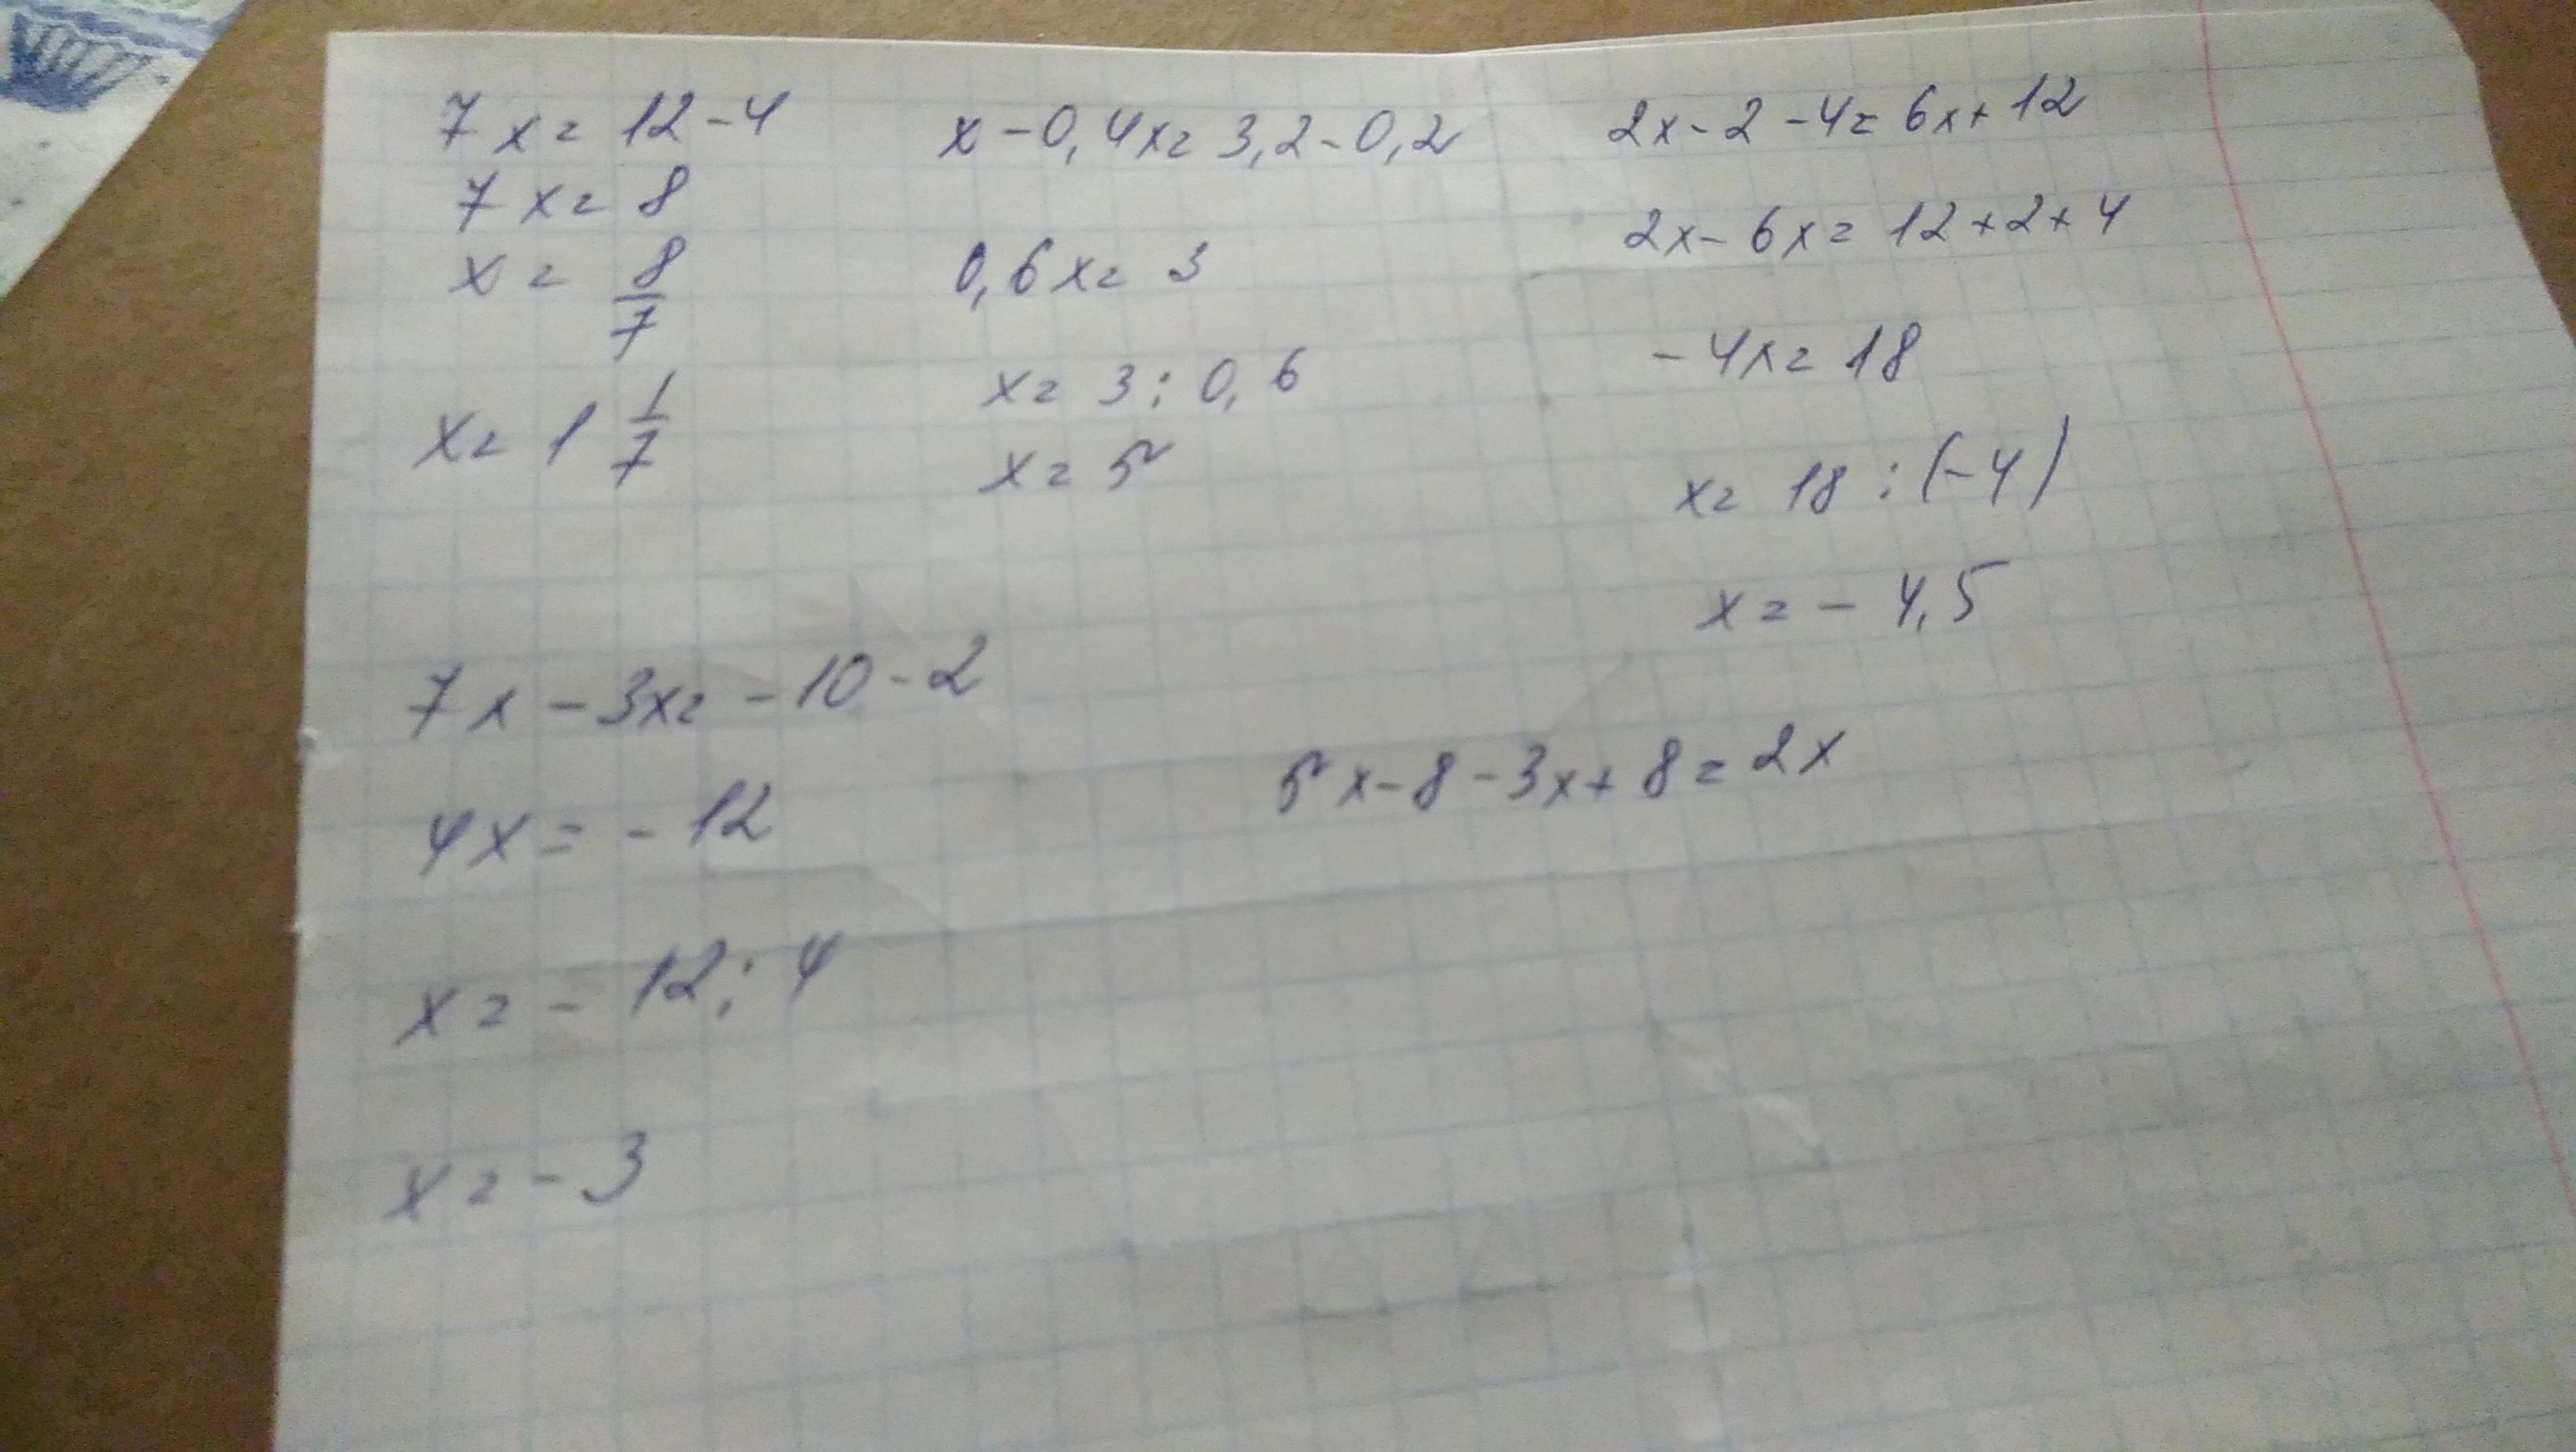 7x = 12 - 4
7x = 8
x = 8/7
x = 1 1/7
x - 0,4x = 3,2 - 0,2
0,6x = 3
x = 3 : 0,6
x = 5
2x - 2 - 4 = 6x + 12
2x - 6x = 12 + 2 + 4
-4x = 18
x = 18 : (-4)
x = - 4,5
7x - 3x = -10 - 2
4x = - 12
x = - 12 : 4
x = - 3
5x - 8 - 3x + 8 = 2x